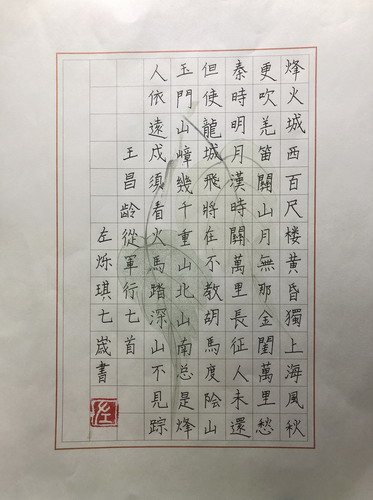 烽火城西百尺楼黄昏獨上海風秋
更吹羌笛關山月無那金閨萬里愁
秦時明月漢時關萬里長征人未還
但使龍城飛將在不教胡馬度陰山
玉門山嶂幾千重山北山南总是烽
人依遠戍須看火馬踏深山不見踪
王昌齡從軍行七首
左烁琪七歲書
左